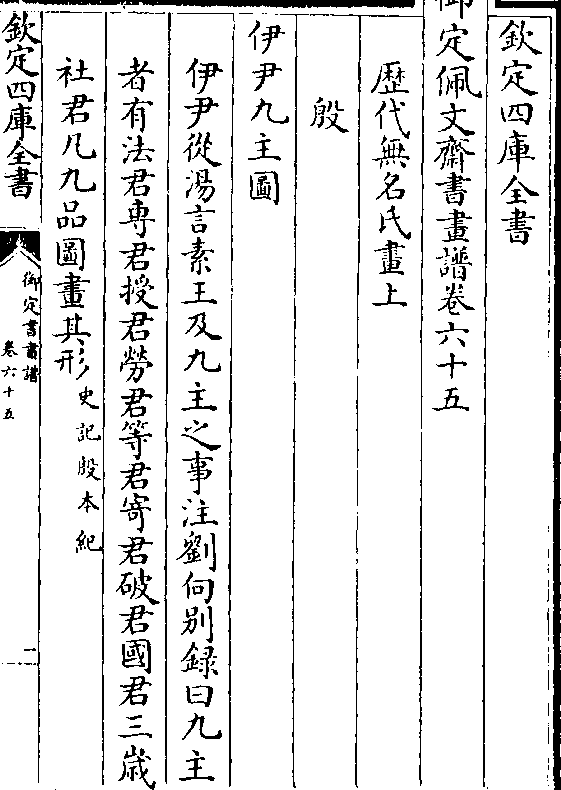 欽定四庫全書
御定佩文齋書畫譜卷六十五
歷代無名氏畫上
殷
伊尹九主圖
伊尹從湯言素王及九主之事注劉向別録曰九主
者有法君專君授君勞君等君寄君破君國君三歲
社君凡九品圖畫其形史記殷本紀
欽定四庫全書
御定書畫譜
卷六十五
一